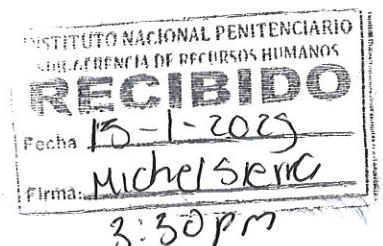 INSTITUTO NACIONAL PENITENCIARIO
SUB-GERENCIA DE RECURSOS HUMANOS
RECIBIDO
Fecha 15-1-2025
Firma: Michel Sierra
3:30pm